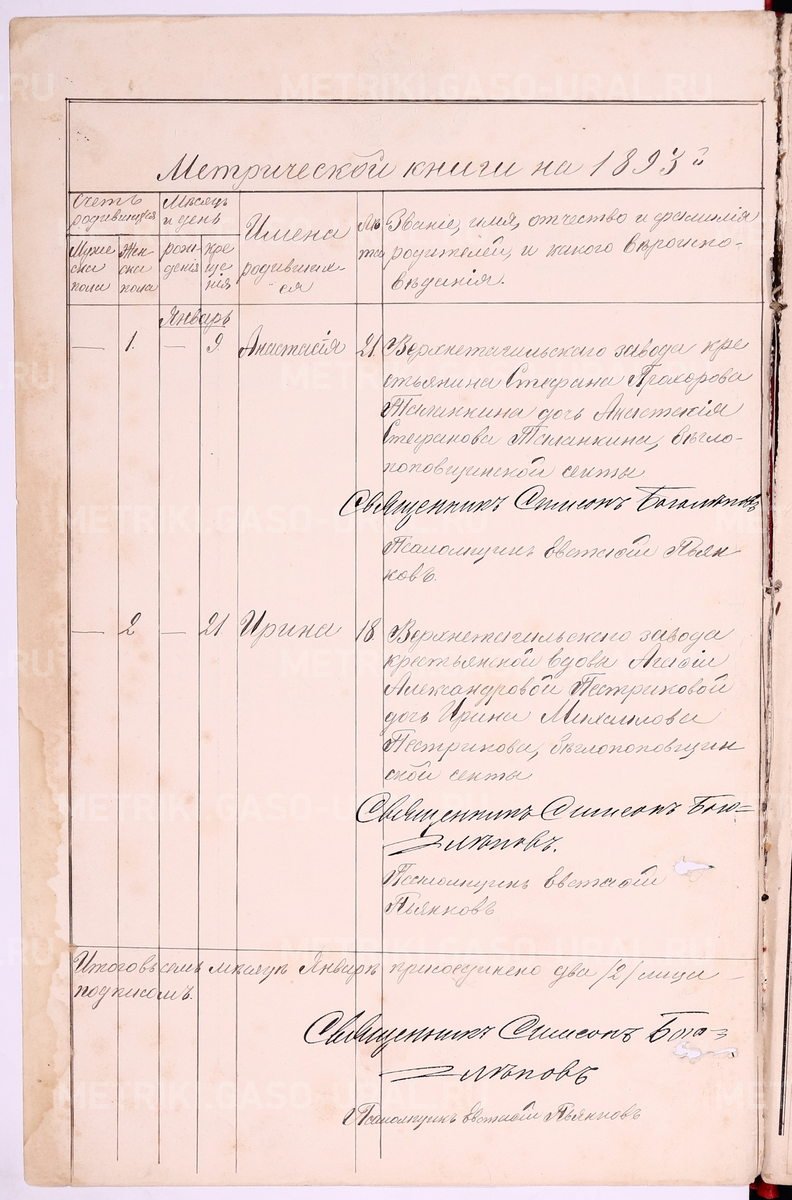 Метрической книги на 1893 й
Счетъ родившихся
Мужеска пола
Женска пола
Мѣсяцъ и день
рождения
крещенія
Имена родившихся
Лѣта
Званіе, имя, отчество и фамилія
родителей, и какого вѣроиспо-
вѣданія.
Январь
— 1. — 9. Анастасія 21. Верхнетагильского завода кре
стьянина Стефана Прохорова
Таланкина дочь Анастасія
Стефанова Таланкина, бѣгло-
поповщинской секты
Священникъ Симеонъ Боголѣповъ
Псаломщикъ Евстафій Пьян
ковъ.
— 2 — 21 Ирина 18 Верхнетагильского завода
крестьянской вдовы Агафіи
Александровой Пестриковой
дочь Ирина Михаилова
Пестрикова, бѣглопоповщин
ской секты
Священникъ Симеонъ Бого=
лѣповъ.
Псаломщикъ Евстафій
Пьянковъ
Итого въ семъ мѣсяцѣ Январѣ присоединено два /2/ лица
подпискомъ.
Священникъ Симеонъ Бого=
лѣповъ
Псаломщикъ Евстафій Пьянковъ
METRIKI.GASO-URAL.RU